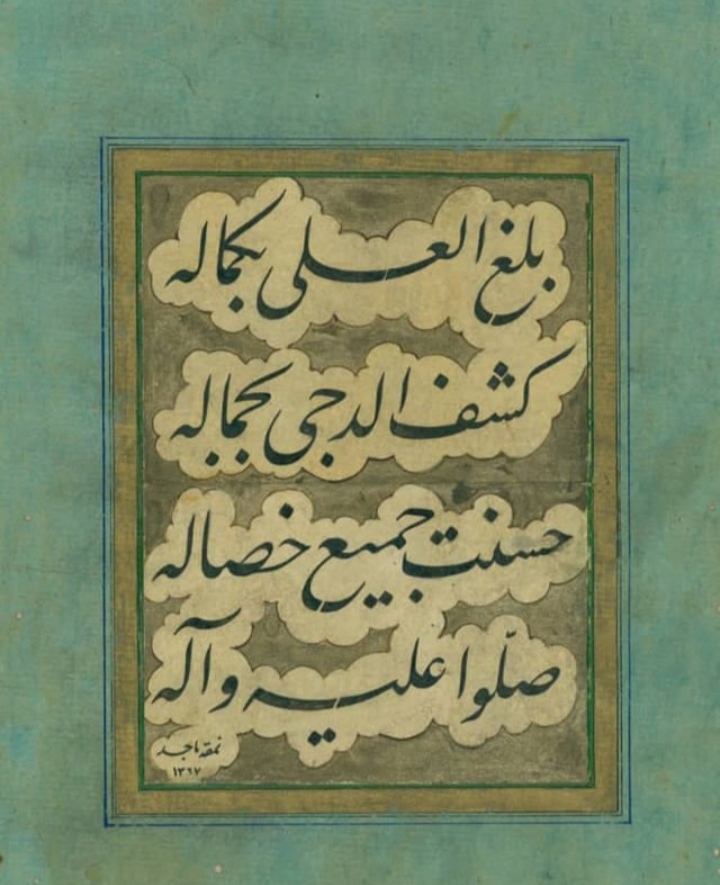 بلغ العلى بكماله
كشف الدجى بجماله
حسنت جميع خصاله
صلّوا عليه وآله
نمقه ماجد
١٣٦٧